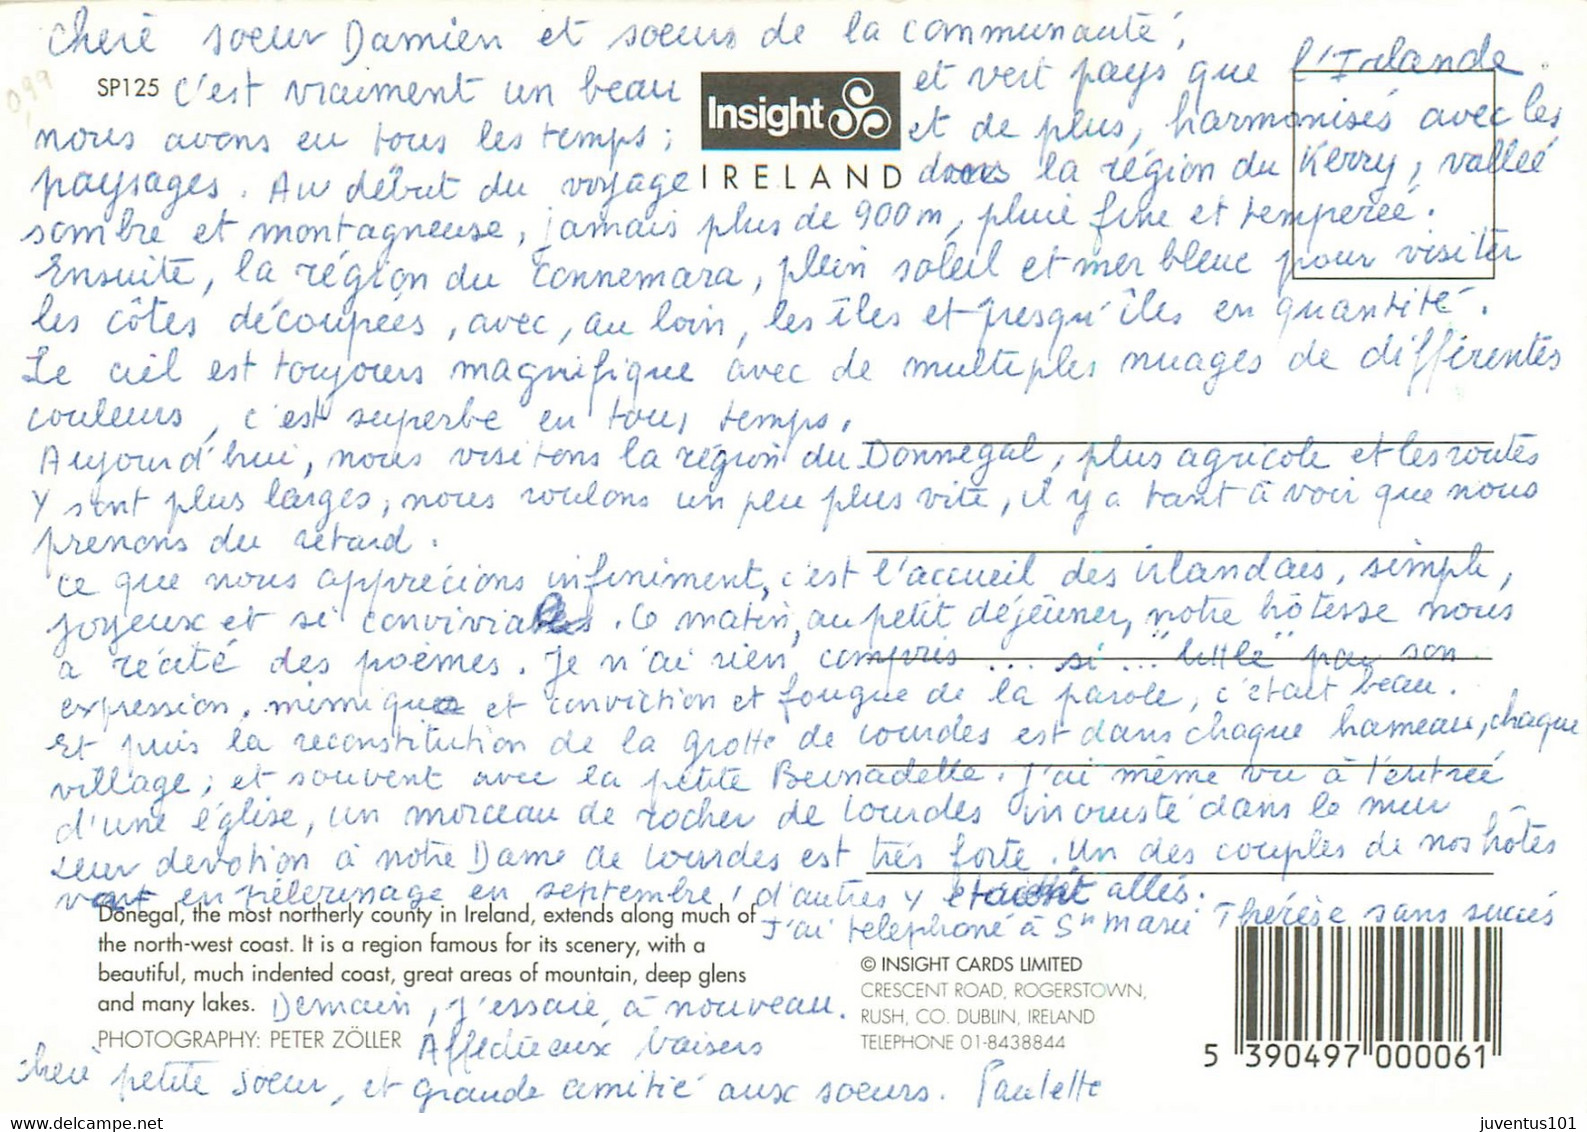 chère soeur Damien et soeurs de la communauté,
SP125 c'est vraiment un beau Insight et vert pays que l'Irlande.
nous avons eu tous les temps ; et de plus, harmonisés avec les
paysages. Au début du voyage IRELAND dans la région du Kerry, valleé
sombre et montagneuse, jamais plus de 900m, pluie fine et temperée.
Ensuite, la région du Connemara, plein soleil et mer bleue pour visiter
les côtes découpées, avec, au loin, les îles et presqu'îles en quantité.
Le ciel est toujours magnifique avec de multiples nuages de différentes
couleurs, c'est superbe en tous temps.
Aujourd'hui, nous visitons la région du Donnegal, plus agricole et les routes
y sont plus larges, nous roulons un peu plus vite, il y a tant à voir que nous
prenons du retard.
ce que nous apprécions infiniment, c'est l'accueil des irlandais, simple,
joyeux et si convivial. Ce matin, au petit déjeûner, notre hôtesse nous
a récité des poèmes. Je n'ai rien compris ... si ... "little" par son
expression, mimique et conviction et fougue de la parole, c'était beau.
Et puis la reconstitution de la grotte de Lourdes est dans chaque hameau, chaque
village ; et souvent avec la petite Bernadette. J'ai même vu à l'entreé
d'une église, un morceau de rocher de Lourdes incrusté dans le mur
Leur devotion à notre Dame de Lourdes est très forte. Un des couples de nos hôtes
vont en pélerinage en septembre, d'autres y étaient allés.
Donegal, the most northerly county in Ireland, extends along much of
the north-west coast. It is a region famous for its scenery, with a
beautiful, much indented coast, great areas of mountain, deep glens
and many lakes.
PHOTOGRAPHY: PETER ZÖLLER
J'ai telephoné à Sr Marie Thérèse sans succés
Demain, j'essaie à nouveau.
Affectueux baisers
chère petite soeur, et grande amitié aux soeurs. Paulette
© INSIGHT CARDS LIMITED
CRESCENT ROAD, ROGERSTOWN,
RUSH, CO. DUBLIN, IRELAND
TELEPHONE 01-8438844
5 390497 000061
juventus101